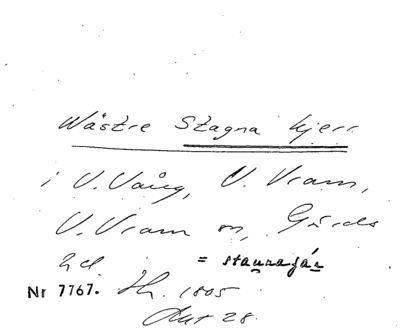 Wästre Stagna kjerr
i V. Vång, V. Vram,
V. Vram sn, Gärds
hd = staunajár
Nr 7767. Sk. 1805
Akt 28.